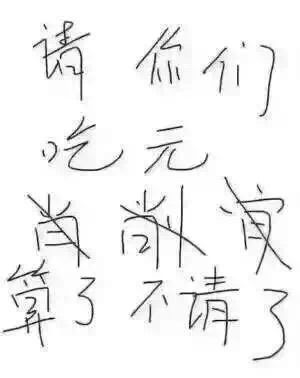 请你们
吃元
肖 削 宵
算了不请了